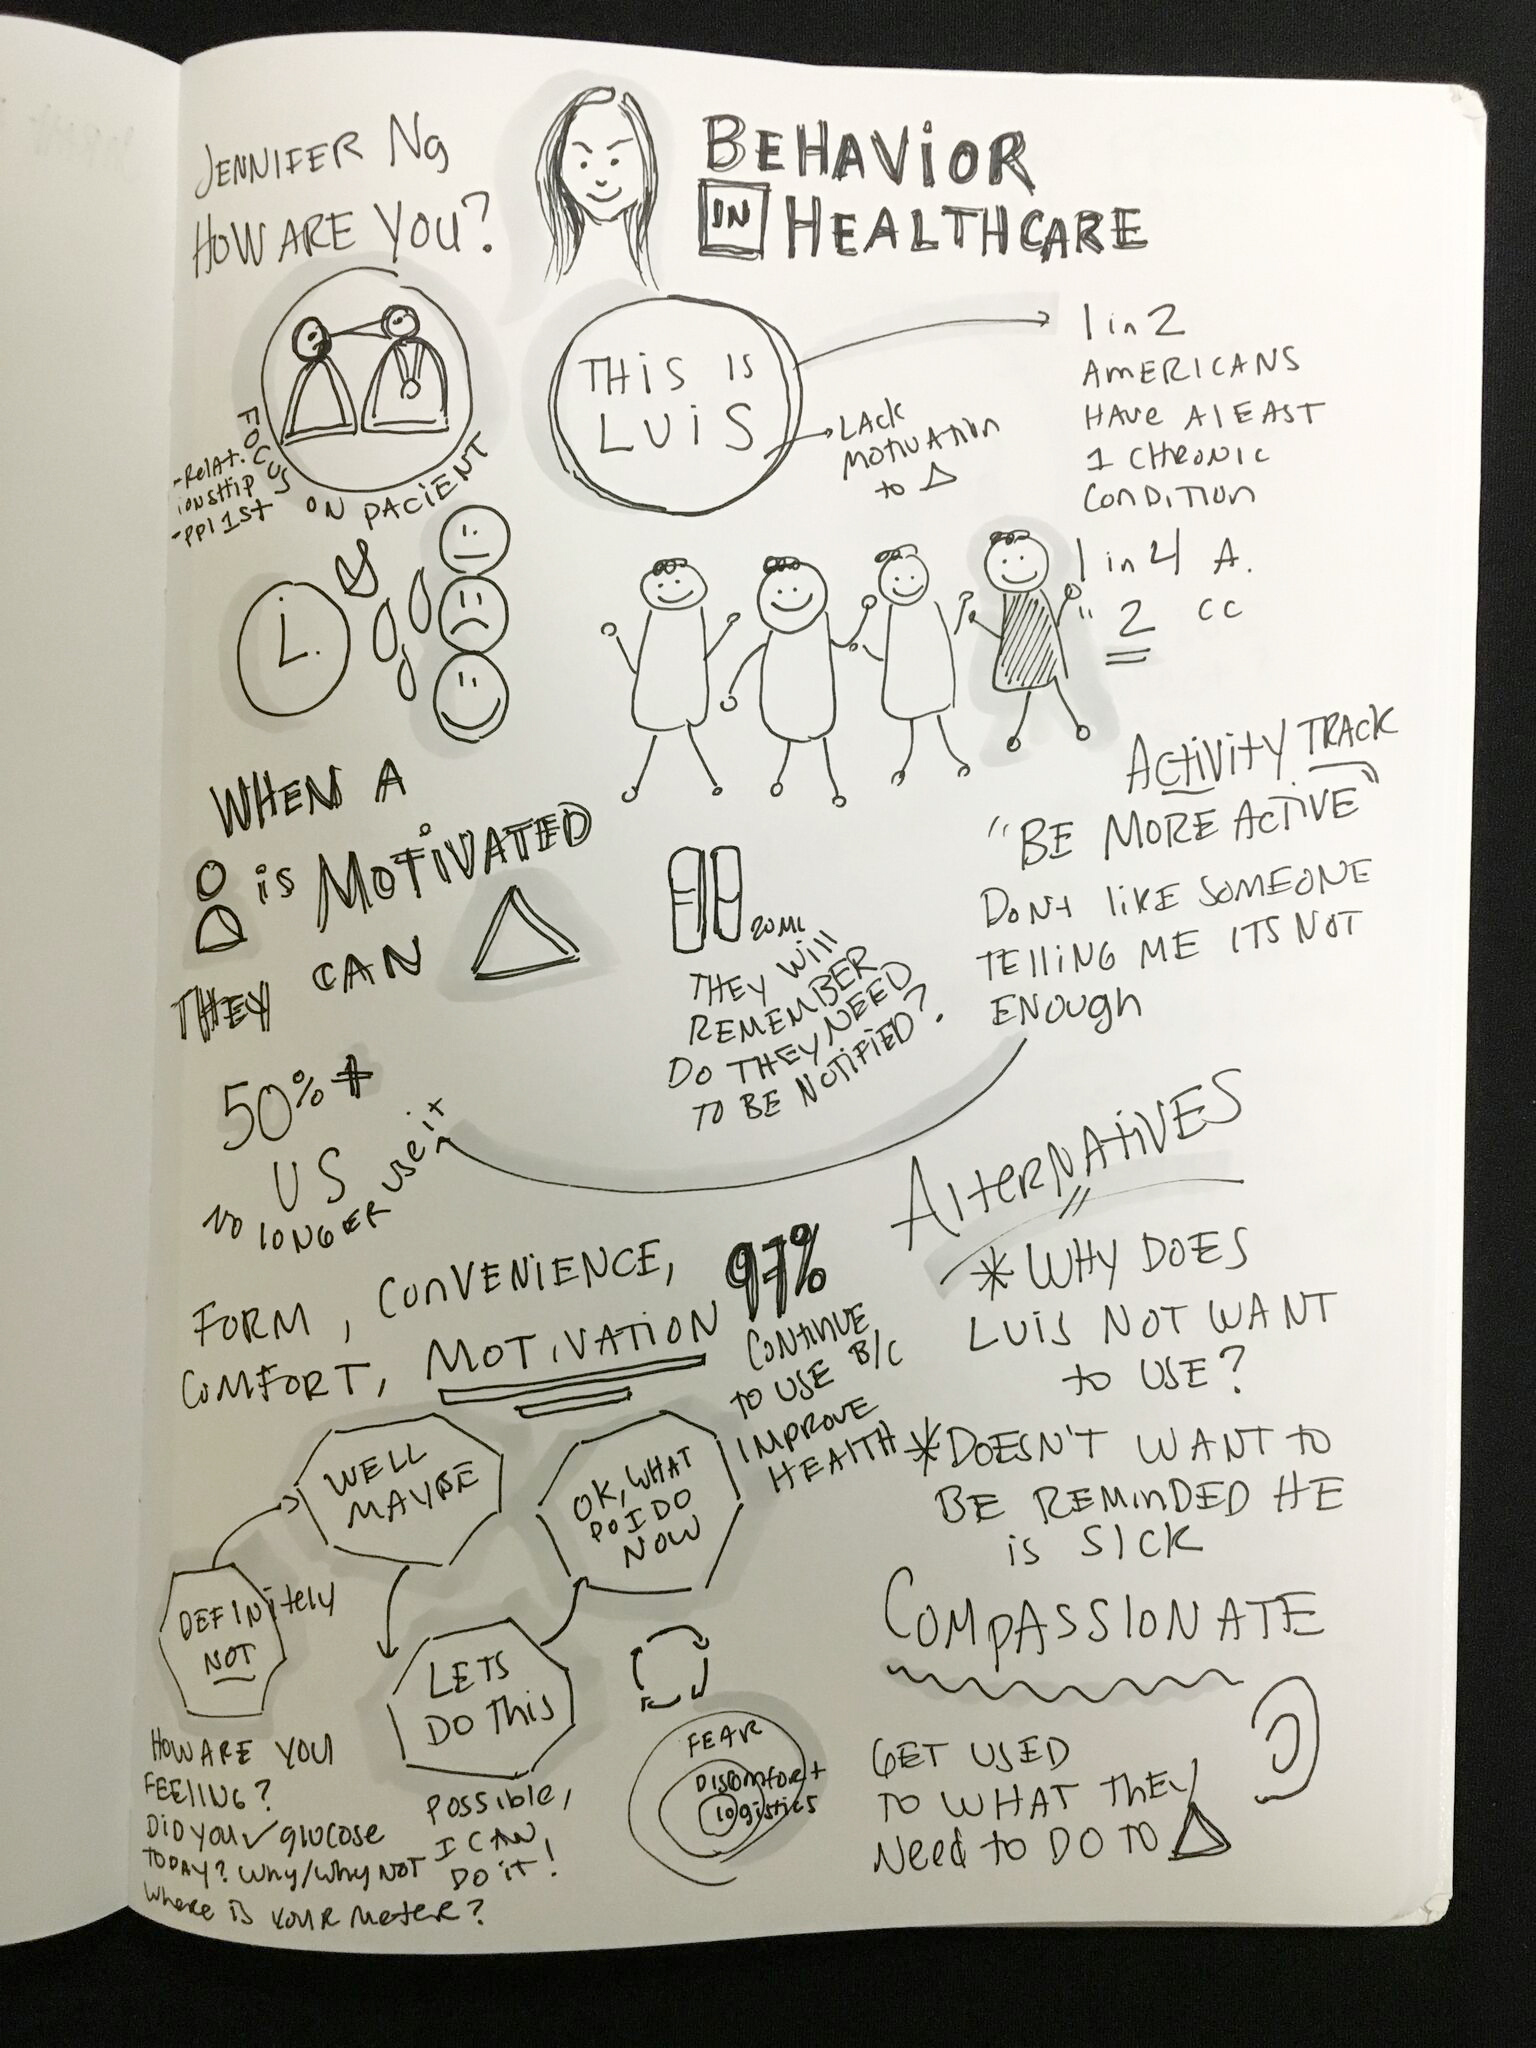 JENNIFER Ng
HOW ARE YOU?
BEHAVIOR
IN HEALTHCARE
FOCUS ON PACIENT
-Relat.
ionship
-PPl 1st
THIS IS
LUIS
LACK
MOTIVATION
to △
1 in 2
AMERICANS
HAVE AlEAST
1 CHRONIC
CONDITION
1 in 4 A.
" 2 CC
L.
WHEN A
is MOTIVATED
THEY CAN △
20ML
THEY Will
REMEMBER
DO THEY NEED
TO BE NOTIFIED?
ACtiVitY TRACK
"BE MORE ACTIVE"
DON'T liKE SOMEONE
TElliNG ME ITS NOT
ENOUgh
50% +
US
NO LONGER USE it
AlterNAtiVES
* WHY DOES
LUIS NOT WANT
to USE?
* DOESN'T WANT to
BE REMINDED HE
is SICK
FORM, CONVENIENCE,
COMFORT, MOTIVATION
97%
CONTINUE
TO USE B/C
IMPROVE
HEALTH
DEFINitely
NOT
WELL
MAYBE
LETS
DO This
OK, WHAT
DO I DO
NOW
HOW ARE YOU
FEElING?
DiD YOU ✓ glucose
TODAY? Why/Why NOT
Where is YOUR Meter?
Possible,
I CAN
DO it!
FEAR
DISCOMfort
logistics
COMPASSIONATE
GET USED
TO WHAT THEY
Need to DO TO △